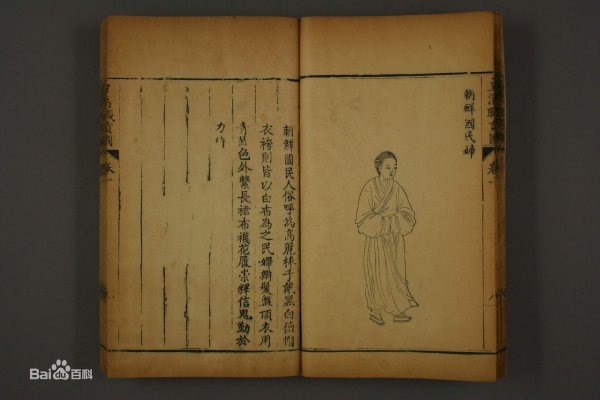 朝鮮國民婦
朝鮮國民人俗呼為高麗棒子戴黑白氊帽
衣袴則皆以白布為之民婦辮髮盤頂衣用
青藍色外繫長裙布襪花履崇釋信鬼勤於
力作
皇清職貢圖 卷一
皇清職貢圖 卷一
Bai百科